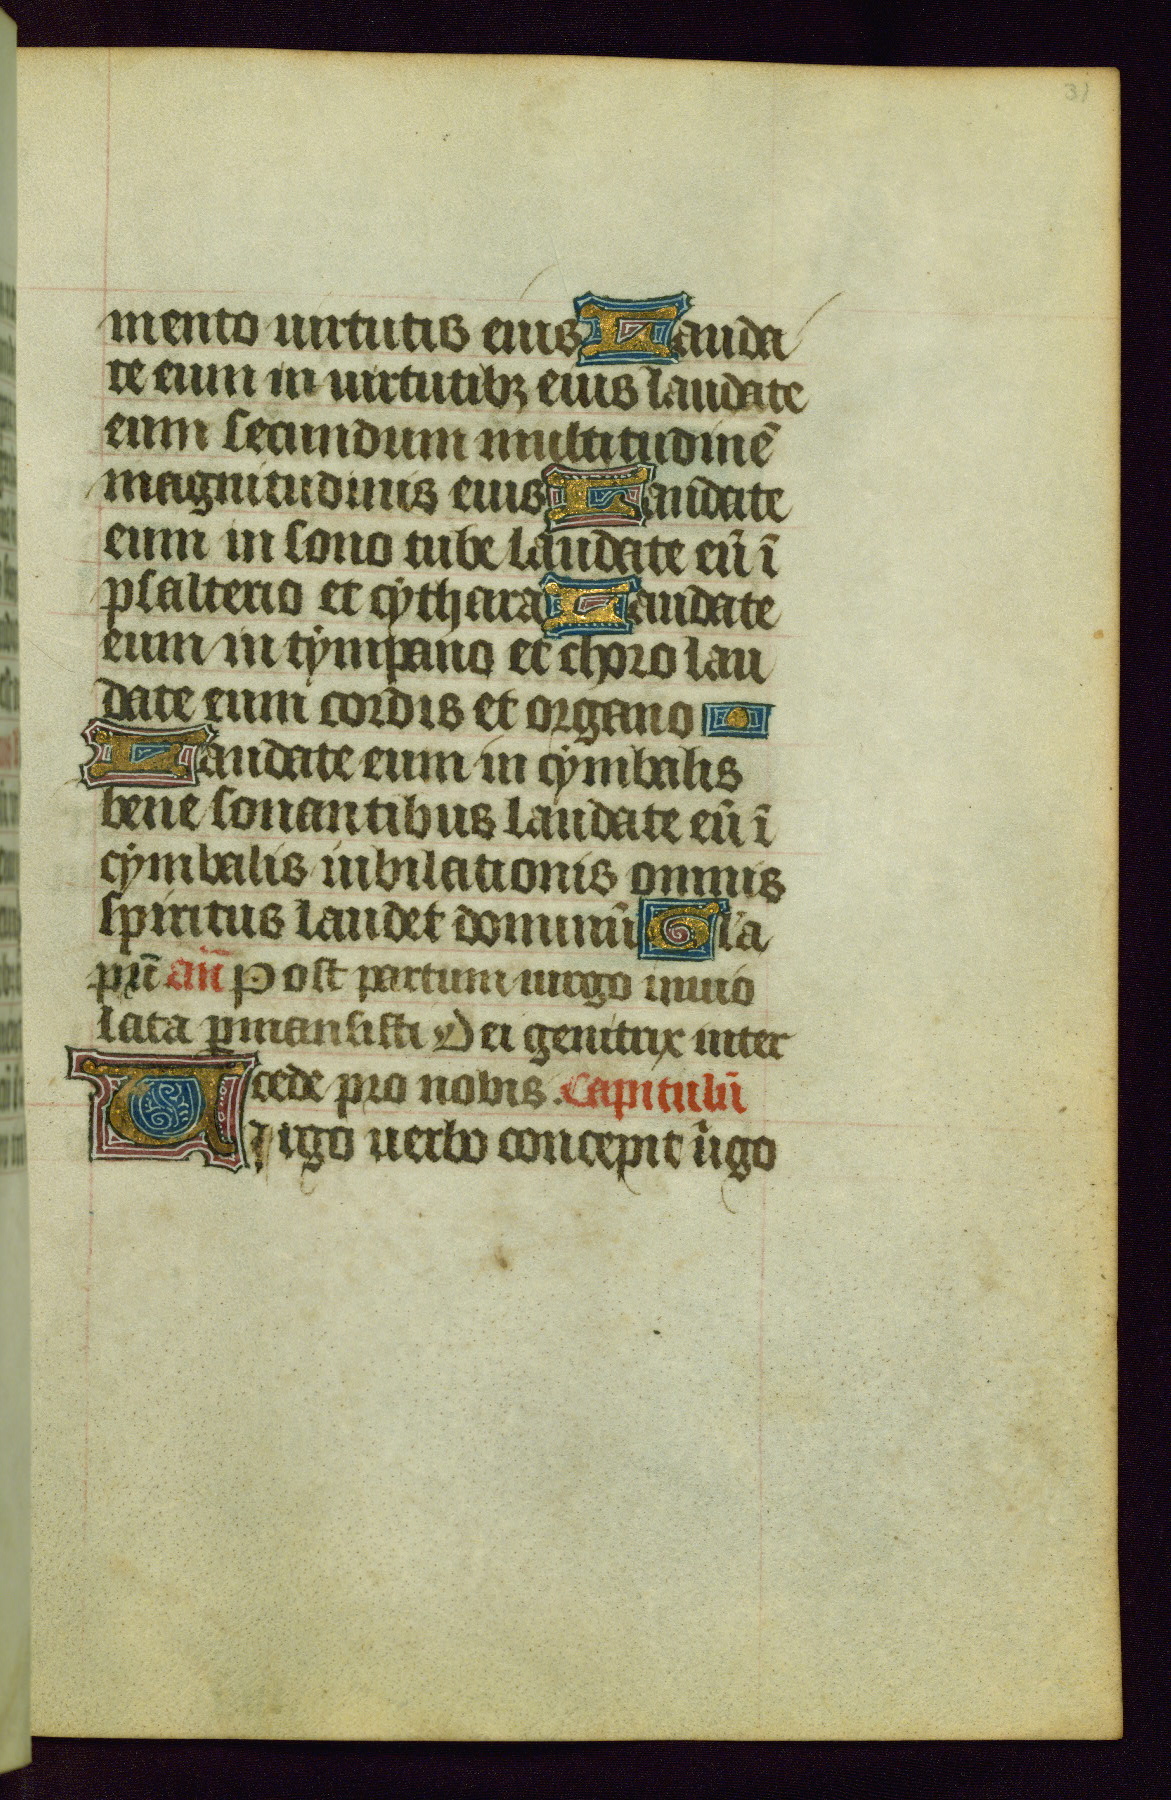 31
mento uirtutis eius Lauda
te eum in uirtutibꝫ eius laudate
eum secundum multitudinē
magnitudinis eius Laudate
eum in sono tube laudate eū ī
psalterio et cẏthara Laudate
eum in tẏmpano et choro lau
date eum cordis et organo
Laudate eum in cẏmbalis
bene sonantibus laudate eū ī
cẏmbalis iubilationis omnis
spiritus laudet dominū Gla
prī an̄ Post partum uirgo inuio
lata ꝑmansisti Dei genitrix inter
cede pro nobis. Capitulū
Virgo uerbo concepit ūgo